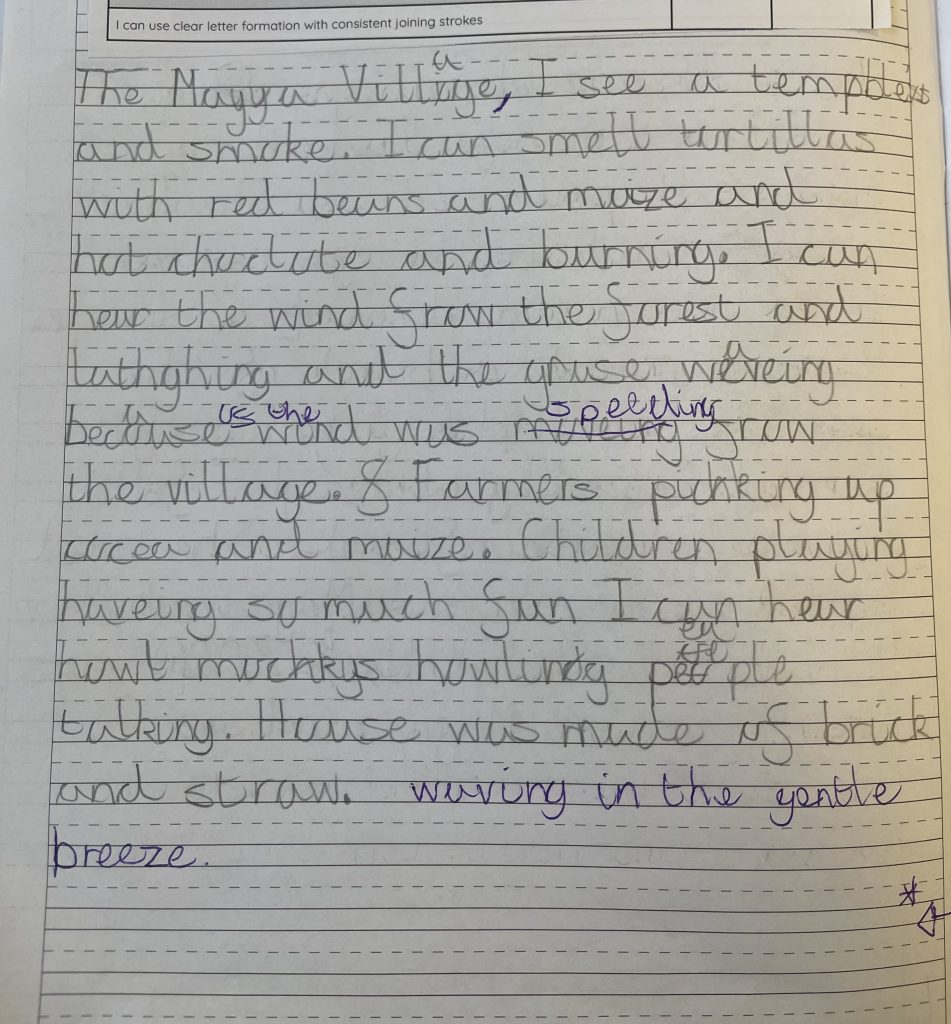 I can use clear letter formation with consistent joining strokes
The Mayya Village, I see a temples
and smoke. I can smell tortillas
with red beans and maize and
hot choclate and burning. I can
hear the wind frow the forest and
lathghing and the grase waveing
because as the wind was speeding frow
the village. & Farmers pichking up
cocoa and maize. Children playing
haveing so much fun I can hear
howt mochkys howlindg people
talking. House was made of brick
and straw. waving in the gentle
breeze.